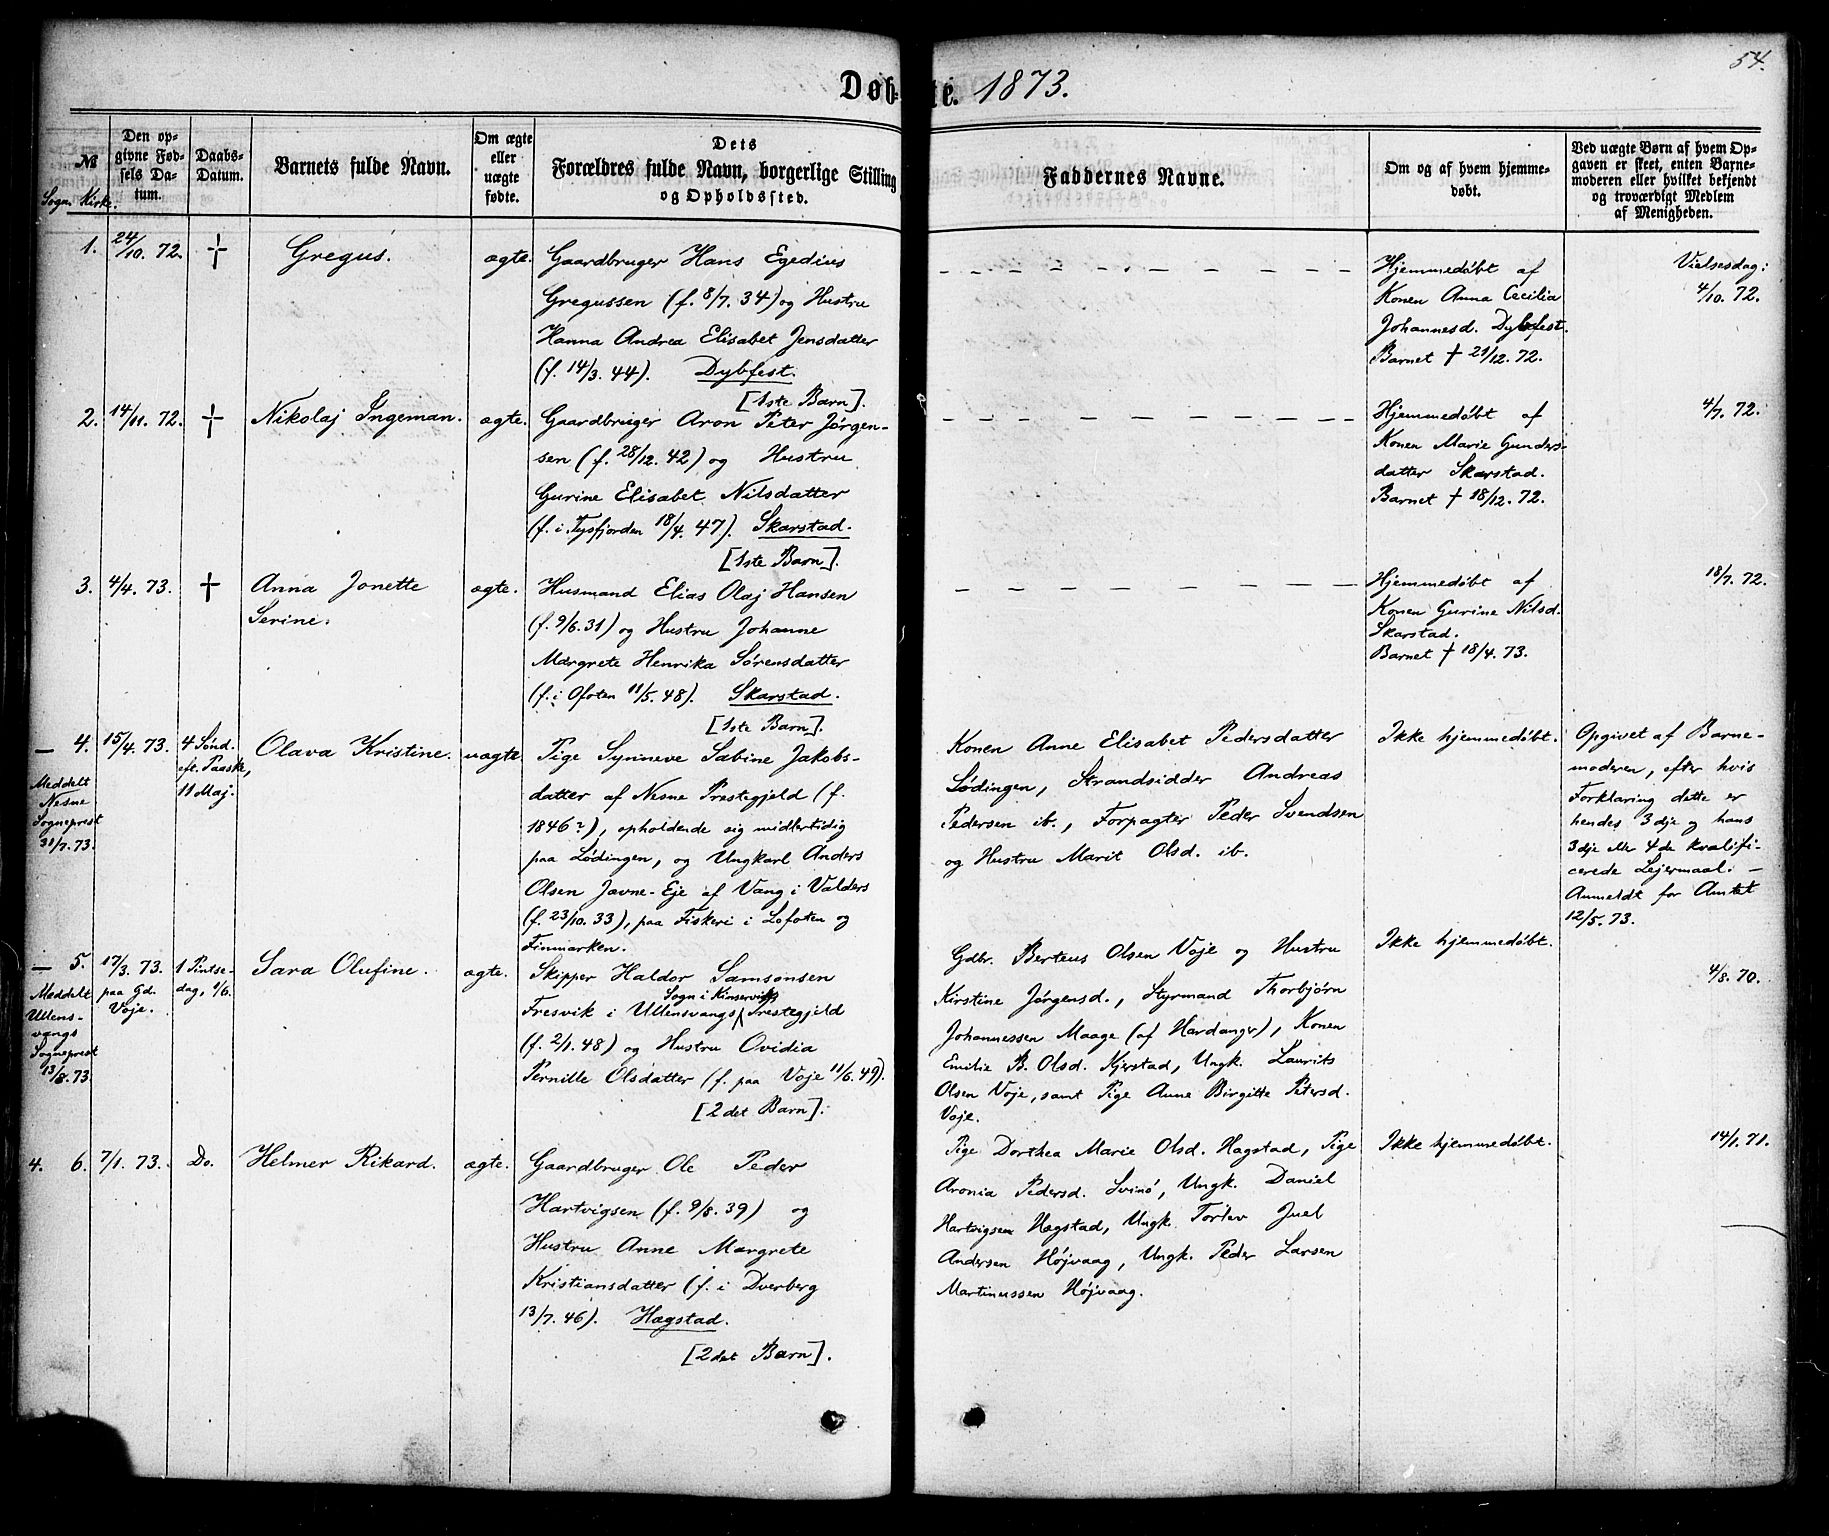 54.
Døb-te. 1873.
№
Sogn. Kirke.
Den op-
givne Fød-
sels Da-
tum.
Daabs-
Datum.
Barnets fulde Navn.
Om ægte
eller
uægte
fødte.
Dets
Forældres fulde Navn, borgerlige Stilling
og Opholdssted.
Faddernes Navne.
Om og af hvem hjemme-
døbt.
Ved uægte Børn af hvem Op-
gaven er skeet, enten Barne-
moderen eller hvilket bekjendt
og troværdigt Medlem
af Menigheden.
1.
24/10. 72.
†
Gregus.
ægte.
Gaardbruger Hans Egedius
Gregussen (f. 8/7. 34) og Hustru
Hanna Andrea Elisabet Jensdatter
(f. 14/3. 44). Dybfest.
[1ste Barn].
Hjemmedøbt af
Konen Anna Cecilia
Johannesd. Dybfest.
Barnet † 21/12. 72.
Vielsesdag:
4/10. 72.
2.
14/11. 72.
†
Nikolaj Ingeman.
ægte.
Gaardbruger Aron Peter Jørgen-
sen (f. 28/12. 42) og Hustru
Gurine Elisabet Nilsdatter
(f. i Tysfjorden 18/4. 47). Skarstad.
[1ste Barn].
Hjemmedøbt af
Konen Marie Gunders-
datter Skarstad.
Barnet † 18/12. 72.
4/7. 72.
3.
4/4. 73.
†
Anna Jonette
Serine.
ægte.
Husmand Elias Olaj Hansen
(f. 9/6. 31) og Hustru Johanne
Margrete Henrika Sørensdatter
(f. i Ofoten 11/5. 48). Skarstad.
[1ste Barn].
Hjemmedøbt af
Konen Gurine Nilsd.
Skarstad.
Barnet † 18/4. 73.
18/7. 72.
— 4.
Meddelt
Nesne
Sogneprest
31/7. 73.
15/4. 73.
4 Sønd.
eft. Paaske,
11 Maj.
Olava Kristine.
uægte.
Pige Synneve Sabine Jakobs-
datter af Nesne Prestegjeld (f.
1846?), opholdende sig midlertidig
paa Lødingen, og Ungkarl Anders
Olsen Javne-Eje af Vang i Valders
(f. 23/10. 33), paa Fiskeri i Lofoten og
Finmarken.
Konen Anne Elisabet Pedersdatter
Lødingen, Strandsidder Andreas
Pedersen ib., Forpagter Peder Svendsen
og Hustru Marit Olsd. ib.
Ikke hjemmedøbt.
Opgivet af Barne-
moderen, efter hvis
Forklaring dette er
hendes 3dje og hans
3dje eller 4de kvalifi-
cerede Lejermaal. —
Anmeldt for Amtet
12/5. 73.
— 5.
Meddelt
Ullens-
vangs
Sogneprest
13/8. 73.
17/3. 73.
paa Gd.
Voje.
1 Pintse-
dag, 1/6.
Sara Olufine.
ægte.
Skipper Haldor Samsonsen
Fresvik i Ullensvangs Sogn i Kinserviks Prestegjeld
(f. 2/1. 48) og Hustru Ovidia
Pernille Olsdatter (f. paa Voje 11/6. 49).
[2det Barn].
Gdbr. Berteus Olsen Voje og Hustru
Kirstine Jørgensd., Styrmand Thorbjørn
Johannessen Maage (af Hardanger), Konen
Emilie B. Olsd. Kjerstad, Ungk. Laurits
Olsen Voje, samt Pige Anne Birgitte Petersd.
Voje.
Ikke hjemmedøbt.
4/8. 70.
4. 6.
7/1. 73.
Do.
Helmer Rikard.
ægte.
Gaardbruger Ole Peder
Hartvigsen (f. 9/8. 39) og
Hustru Anne Margrete
Kristiansdatter (f. i Dverberg
13/7. 46). Hagstad.
[2det Barn].
Pige Dorthea Marie Olsd. Hagstad, Pige
Aronia Pedersd. Svinø, Ungk. Daniel
Hartvigsen Hagstad, Ungk. Torlev Juel
Andersen Højvaag, Ungk. Peder Larsen
Martinussen Højvaag.
Ikke hjemmedøbt.
14/1. 71.